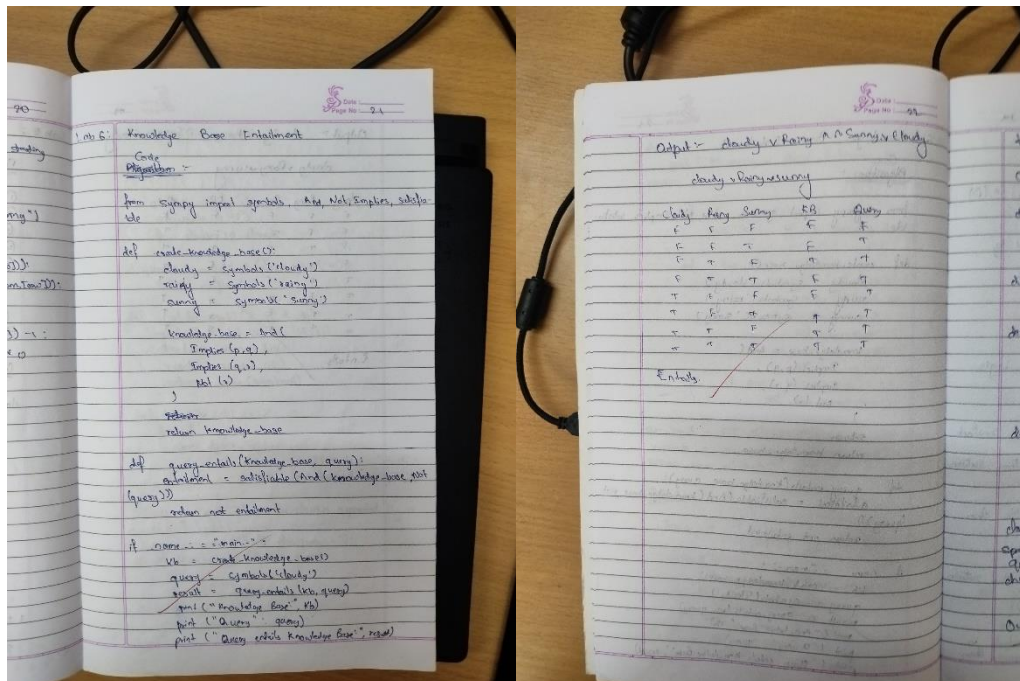 20
Date
Page No 21
Lab 6: Knowledge Base Entailment
Code
Algorithm :-
from sympy import symbols, And, Not, Implies, satisfia-
ble
def create-knowledge_base():
cloudy = symbols ('cloudy')
rainy = symbols ('rainy')
sunny = symbols ('sunny')
knowledge-base = And(
Implies (p,q),
Implies (q,r),
Not (r)
)
return
return knowledge-base
def query-entails (knowledge-base, query):
entailment = satisfiable (And (knowledge-base, Not
(query)))
return not entailment
if name = "main"
kb = create-knowledge-base()
query = symbols('cloudy')
result = query-entails (kb, query)
print ("Knowledge Base", kb)
print ("Query", query)
print ("Query entails Knowledge Base", result)
Date
Page No 22
Output :- cloudy v Rainy ^ ~ Sunny v Cloudy
cloudy v Rainy v sunny
Cloudy Rainy Sunny KB Query
F F F F F
F F T F T
F T F T T
F T T F T
T F F F T
T F T T T
T T F T T
T T T T T
Entails.